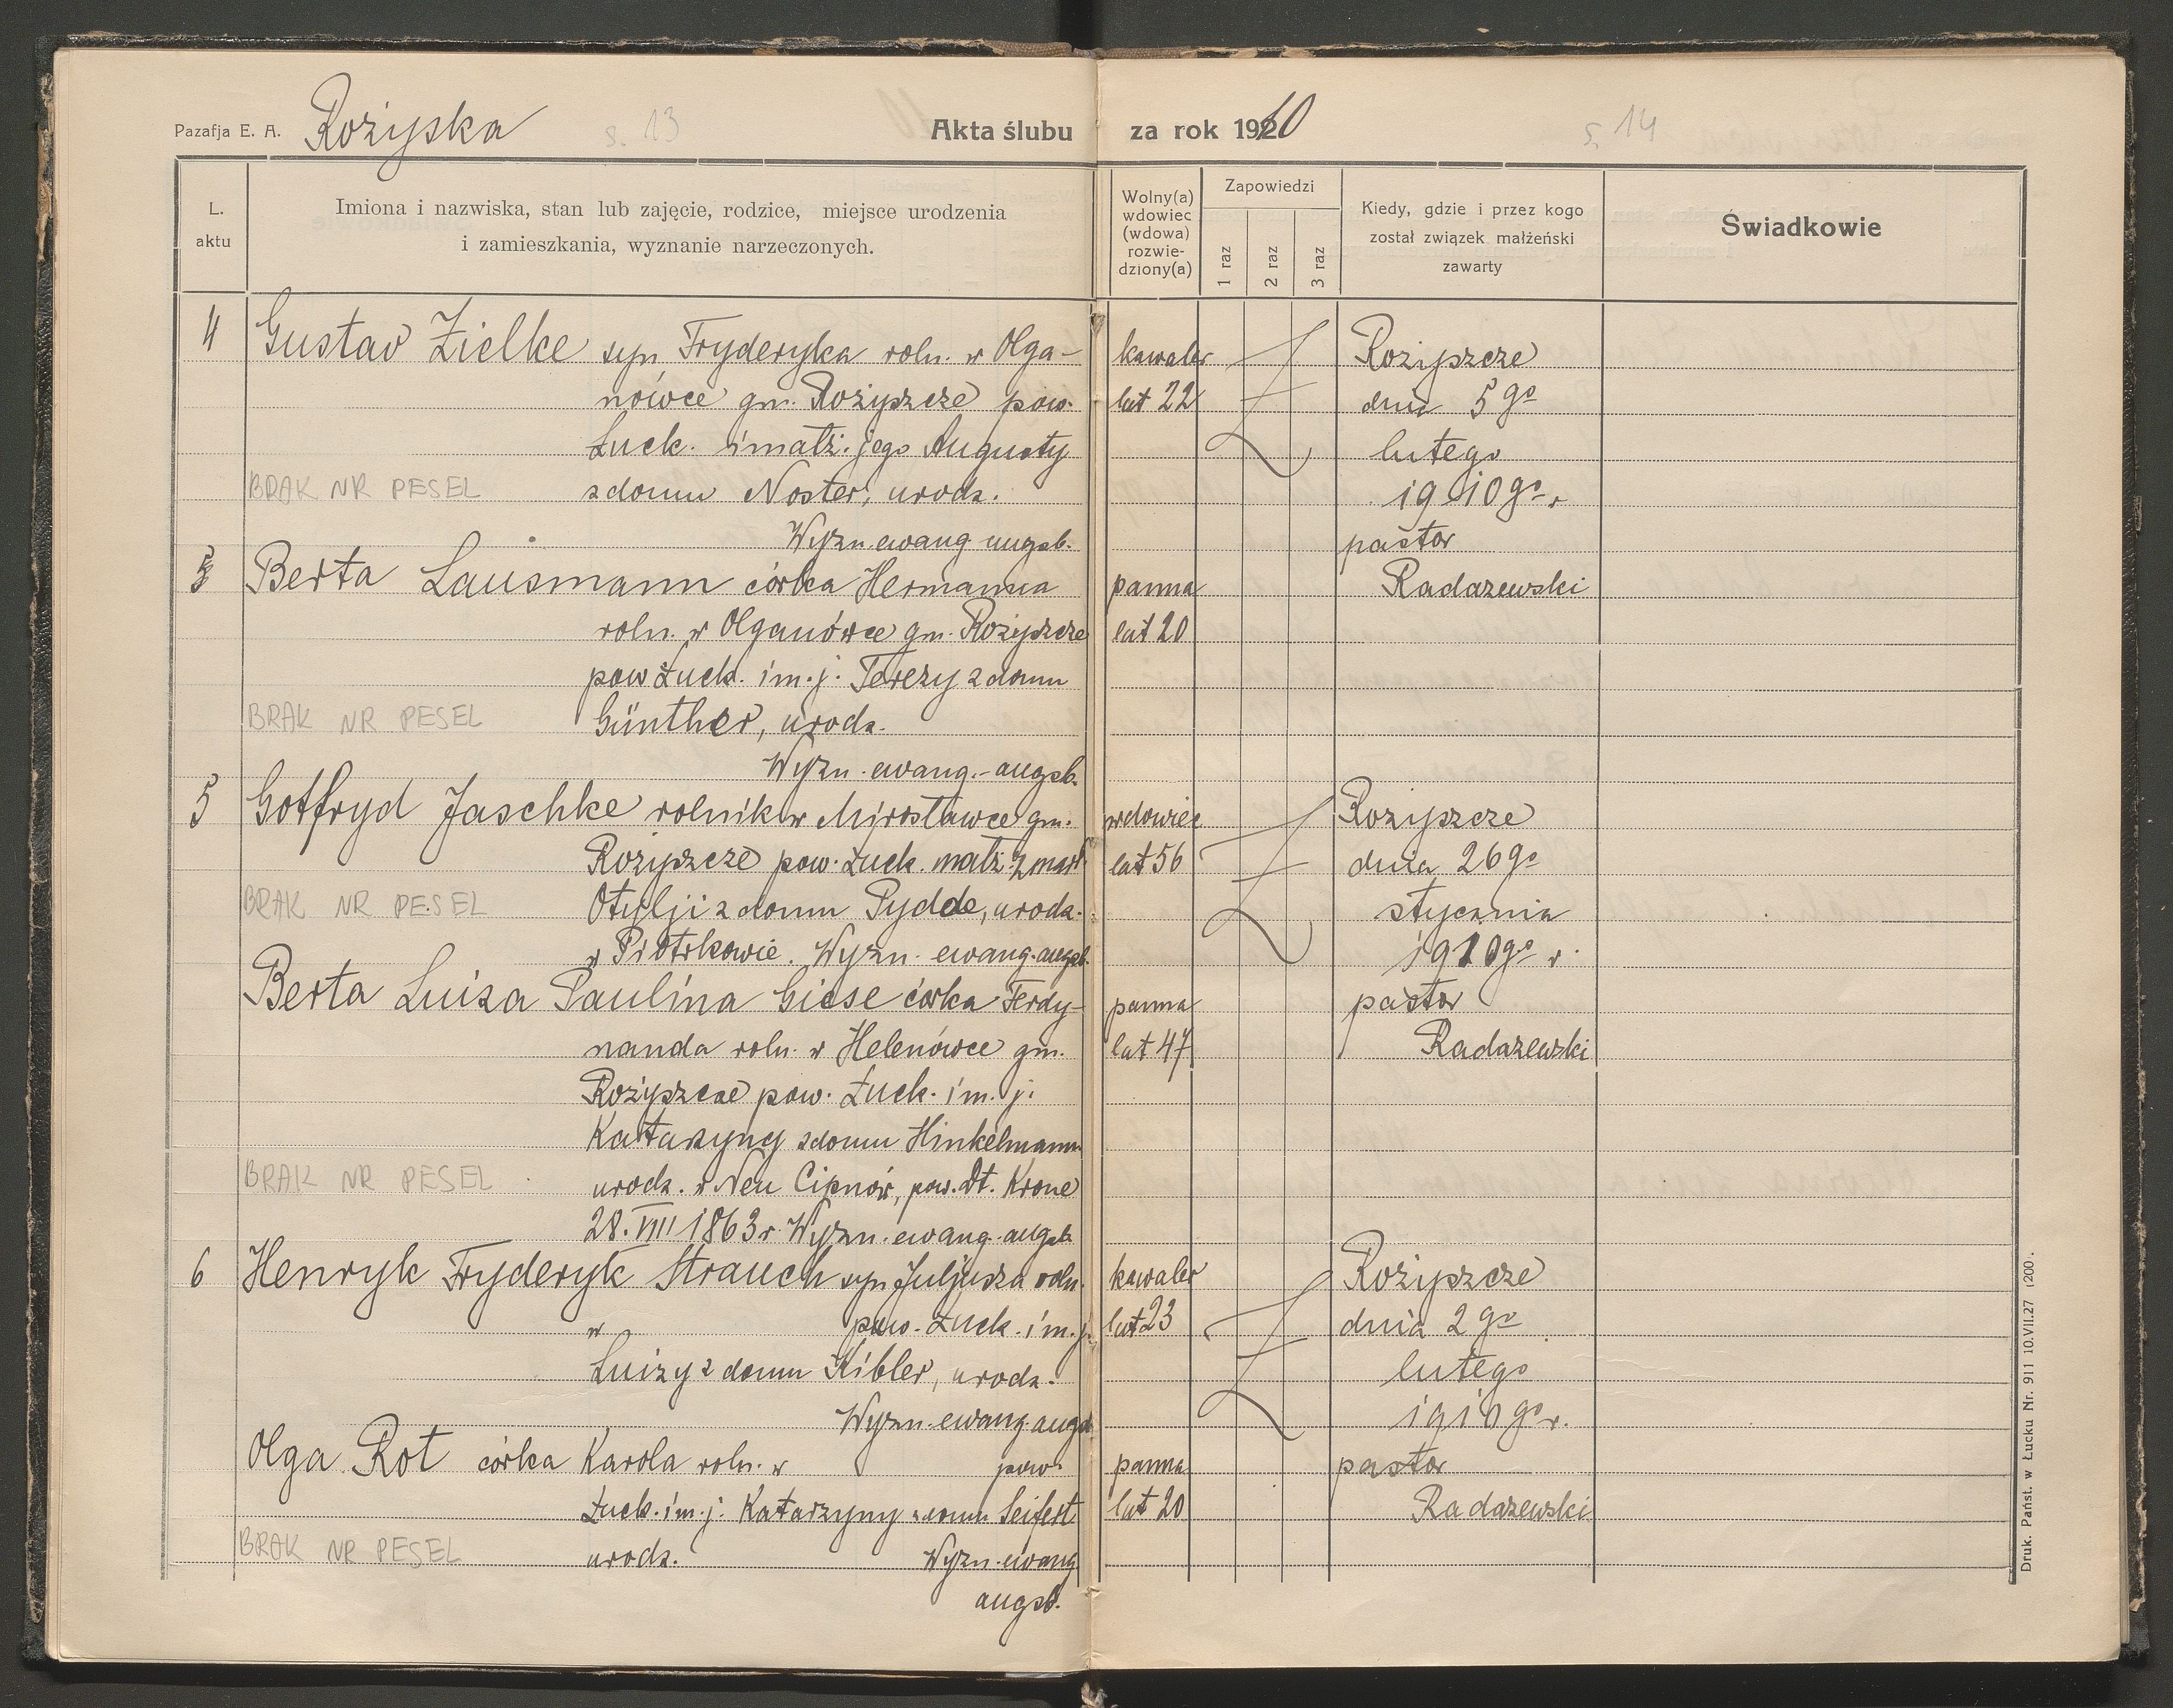 Pazafja E. A. Rożyska s. 13 Akta ślubu za rok 1910 s. 14
L. aktu
Imiona i nazwiska, stan lub zajęcie, rodzice, miejsce urodzenia
i zamieszkania, wyznanie narzeczonych.
Wolny(a)
wdowiec
(wdowa)
rozwie-
dziony(a)
Zapowiedzi
1 raz
2 raz
3 raz
Kiedy, gdzie i przez kogo
został związek małżeński
zawarty
Świadkowie
4 Gustav Zielke syn Fryderyka roln. w Olga- kawaler Rożyszcze
nówce gm. Rożyszcze pow. lat 22 dnia 5 go
Łuck. i małż. jego Augusty lutego
BRAK NR PESEL z domu Noster, urodz. 1910 go r
Wyzn. ewang augsb. pastor
Berta Lausmann córka Hermanna panna Radaszewski
roln. w Olganówce gm. Rożyszcze lat 20
pow Łuck. i m. j. Terezy z domu
BRAK NR PESEL Günther, urodz.
Wyzn. ewang.-augsb.
5 Gotfryd Jaschke rolnik w Mirosławce gm. wdowiec Rożyszcze
Rożyszcze pow. Łuck. małż. zmarł. lat 56 dnia 26 go
BRAK NR PESEL Otylji z domu Pydde, urodz. stycznia
w Piotrkowie. Wyzn. ewang.-augsb. 1910 go r.
Berta Luiza Paulina Giese córka Ferdy- panna pastor
nanda roln. w Helenówce gm. lat 47 Radaszewski
Rożyszcze pow. Łuck. i m. j.
Katarzyny z domu Hinkelmann
BRAK NR PESEL urodz. w Neu Cipnow, pow. Dt. Krone
28. VIII 1863 r. Wyzn. ewang.-augsb
6 Henryk Fryderyk Strauch syn Juljusza roln. kawaler Rożyszcze
w pow. Łuck. i m. j. lat 23 dnia 2 go
Luizy z domu Kibler, urodz. lutego
Wyzn. ewang. augsb 1910 go r.
Olga Rot córka Karola roln. w pow. panna pastor
Łuck. i m. j. Katarzyny z domu Seifert lat 20 Radaszewski
BRAK NR PESEL urodz. Wyzn. ewang
augsb.
Druk. Państ. w Łucku Nr. 911 10.VII.27 1200.